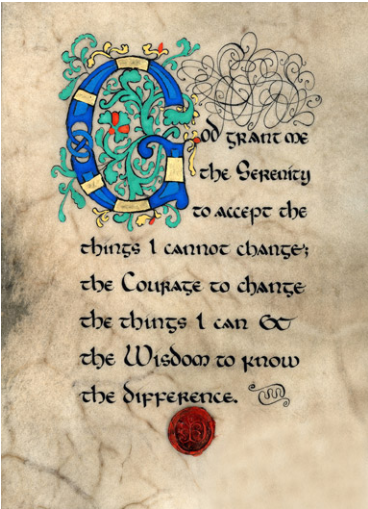 God grant me
the Serenity
to accept the
things I cannot change;
the Courage to change
the things I can &
the Wisdom to know
the difference.